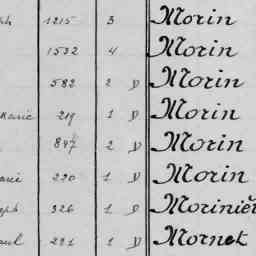 ph 1215 3 Morin
1532 4 Morin
582 2 D Morin
Marie 219 1 D Morin
847 2 D Morin
arie 220 1 D Morin
eph 326 1 D Morinièr
aul 221 1 D Mornet